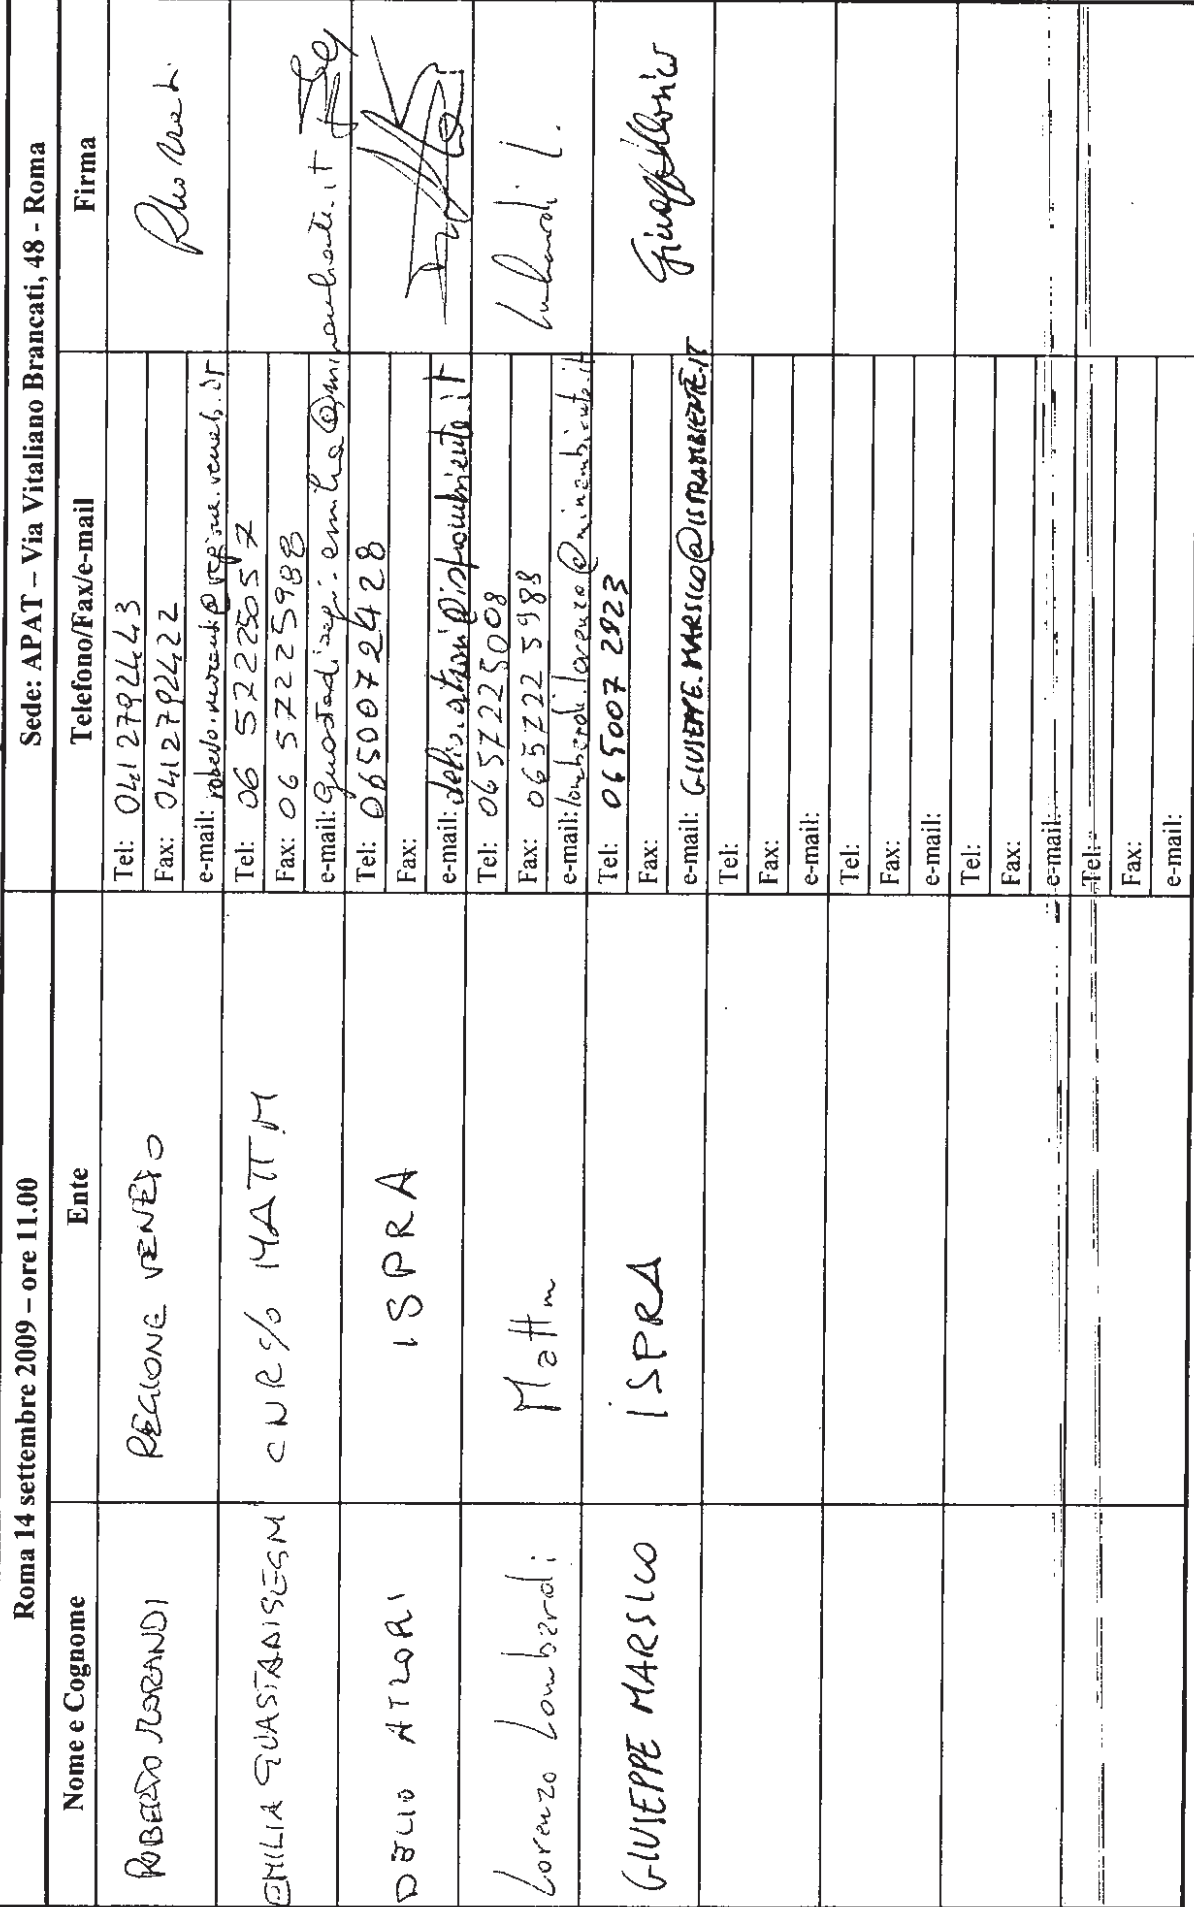 Roma 14 settembre 2009 – ore 11.00
Sede: APAT – Via Vitaliano Brancati, 48 - Roma
Nome e Cognome
Ente
Telefono/Fax/e-mail
Firma
ROBERTO MORANDI
REGIONE VENETO
Tel: 041 2792443
Fax: 041 2792422
e-mail: roberto.morandi@regione.veneto.it
EMILIA GUASTADISEGNI
CNR c/o MATTM
Tel: 06 57225057
Fax: 06 57225988
e-mail: guastadisegni.emilia@minambiente.it
DELIO ATZORI
ISPRA
Tel: 0650072428
Fax:
e-mail: delio.atzori@isprambiente.it
Lorenzo Lombardi
Mattm
Tel: 0657225008
Fax: 0657225988
e-mail: lombardi.lorenzo@minambiente.it
Lombardi L.
GIUSEPPE MARSICO
ISPRA
Tel: 065007 2823
Fax:
e-mail: GIUSEPPE.MARSICO@ISPRAMBIENTE.IT
Tel:
Fax:
e-mail:
Tel:
Fax:
e-mail:
Tel:
Fax:
e-mail:
Tel:
Fax:
e-mail: